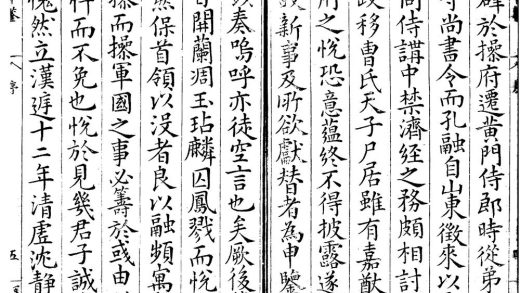 辟於操府遷黄門侍郎時從弟
守尚書令而孔融自山東徵來以
同侍講中禁濟經之務頗相討
政移曹氏天子尸居雖有嘉猷
用之恱恐意藴終不得披露遂
新事及所欲獻替者為申鑒
奏嗚呼亦徒空言也矣厥後
開蘭凋玉玷麟囚鳳戮而恱
然保首領以没者良以融頻寓
操而操軍國之事必籌於彧由
忤而不免也恱於見幾君子誠
愧然立漢廷十二年清虛沈静
序 五